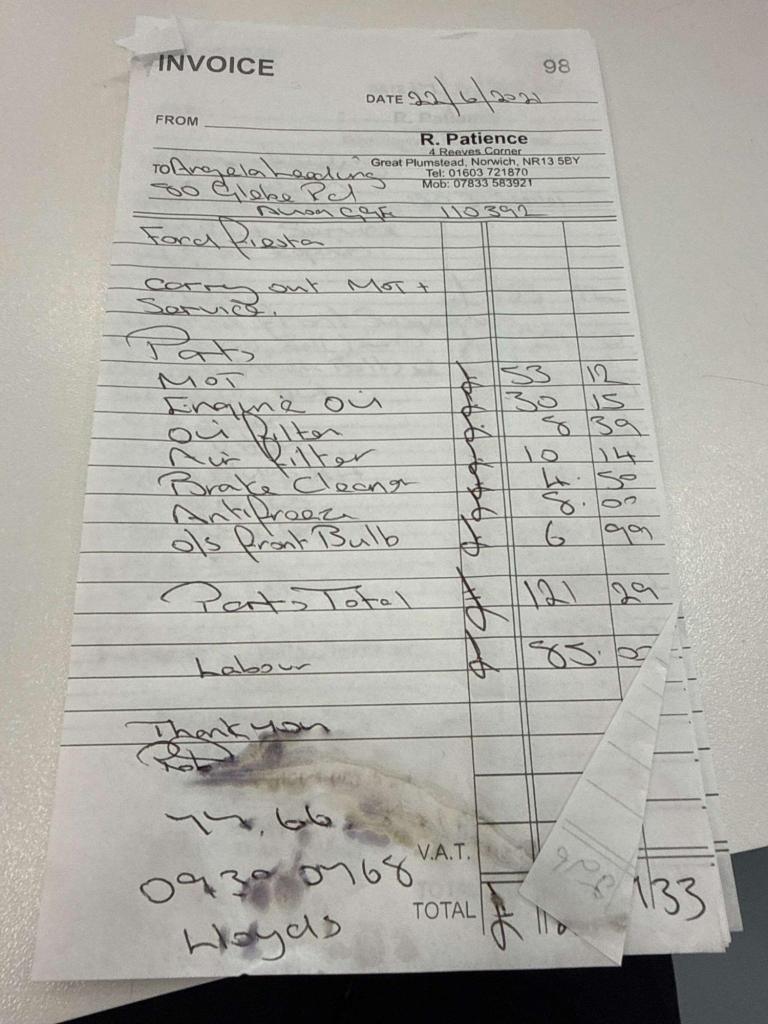 INVOICE 98
DATE 22/6/2021
FROM
R. Patience
4 Reeves Corner
Great Plumstead, Norwich, NR13 5BY
Tel: 01603 721870
Mob: 07833 583921
TO Angela
80 Glebe Rd
110392
Ford Fiesta
Carry out MOT +
Service.
Parts
MOT £ 53 12
Engine Oil £ 30 15
Oil Filter £ 8 39
Air Filter £ 10 14
Brake Cleaner £ 4. 50
Antifreeze £ 8. 00
o/s Front Bulb £ 6 99
Parts Total £ 121 29
Labour £ 85. 00
Thank you
Rob
V.A.T.
0930 0768
TOTAL £
Lloyds